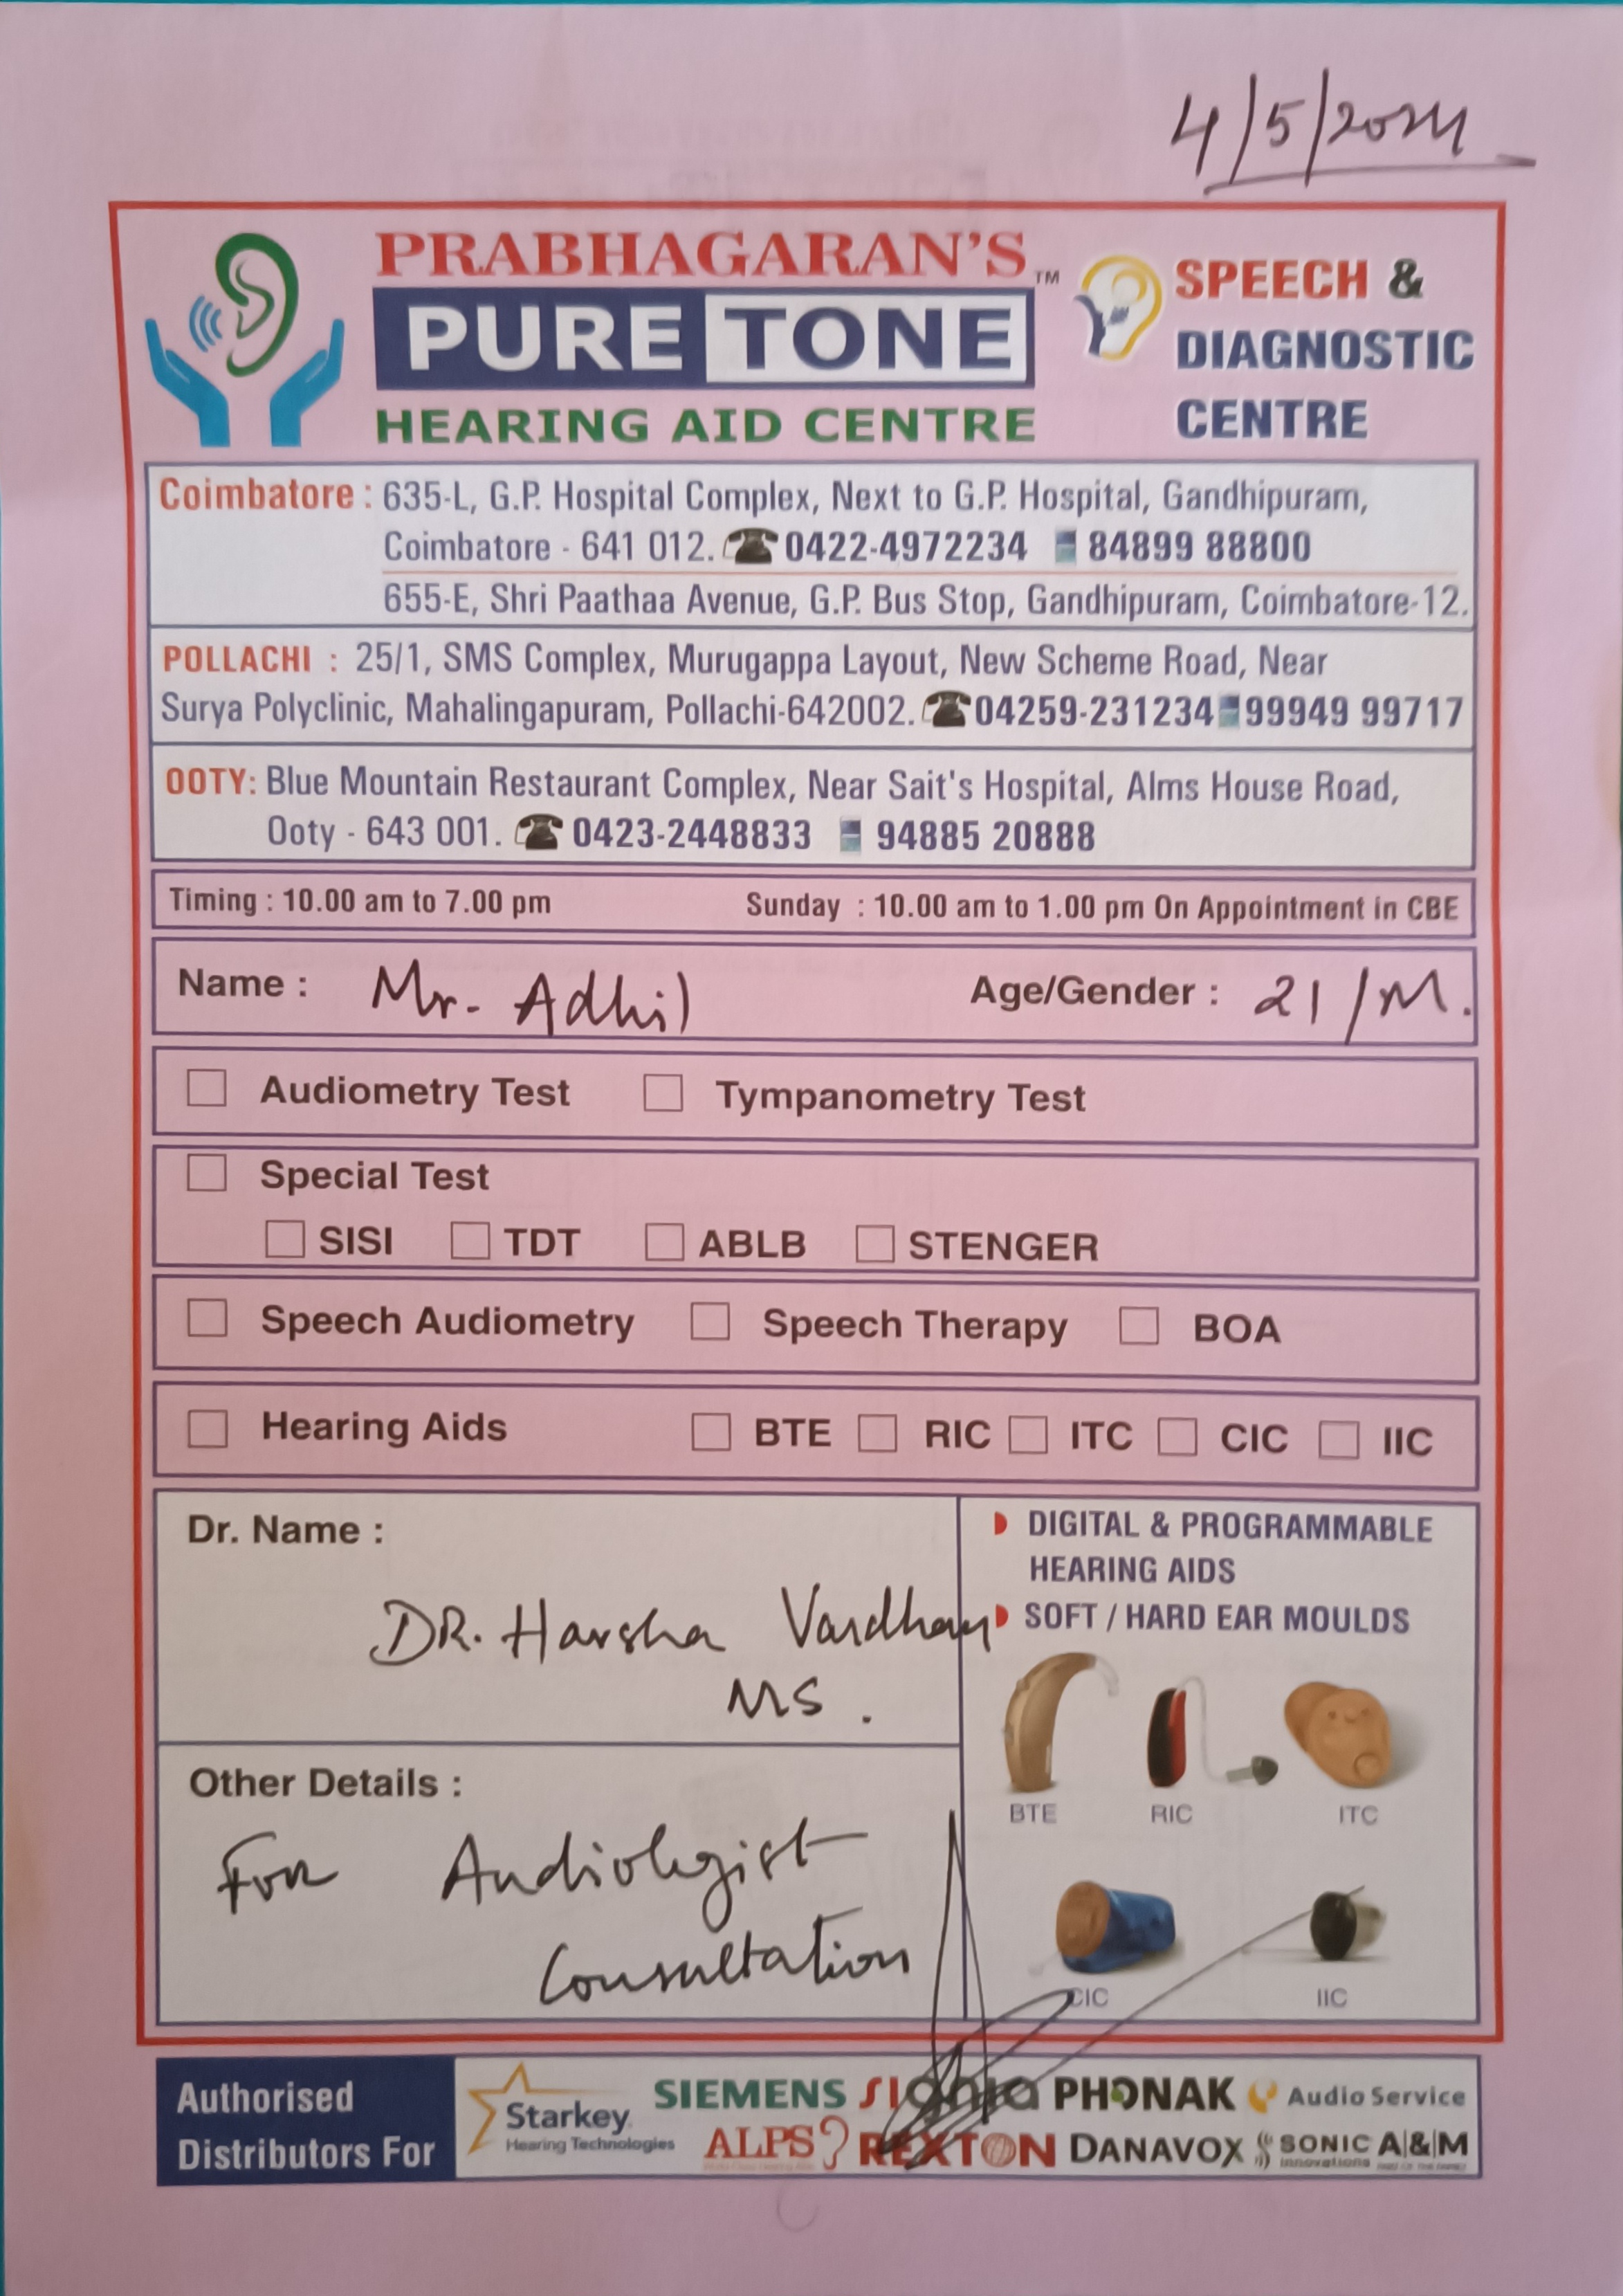 4/5/2024
PRABHAGARAN'S
PURE TONE
TM
HEARING AID CENTRE
SPEECH &
DIAGNOSTIC
CENTRE
Coimbatore : 635-L, G.P. Hospital Complex, Next to G.P. Hospital, Gandhipuram,
Coimbatore - 641 012. 0422-4972234 84899 88800
655-E, Shri Paathaa Avenue, G.P. Bus Stop, Gandhipuram, Coimbatore-12.
POLLACHI : 25/1, SMS Complex, Murugappa Layout, New Scheme Road, Near
Surya Polyclinic, Mahalingapuram, Pollachi-642002. 04259-231234 99949 99717
OOTY: Blue Mountain Restaurant Complex, Near Sait's Hospital, Alms House Road,
Ooty - 643 001. 0423-2448833 94885 20888
Timing : 10.00 am to 7.00 pm Sunday : 10.00 am to 1.00 pm On Appointment in CBE
Name : Mr. Adhil Age/Gender : 21/M.
Audiometry Test Tympanometry Test
Special Test
SISI TDT ABLB STENGER
Speech Audiometry Speech Therapy BOA
Hearing Aids BTE RIC ITC CIC IIC
Dr. Name :
DR. Harsha Vardhan
MS.
Other Details :
For Audiologist
Consultation
DIGITAL & PROGRAMMABLE
HEARING AIDS
SOFT / HARD EAR MOULDS
BTE RIC ITC
CIC IIC
Authorised
Distributors For
Starkey
Hearing Technologies
SIEMENS Signia PHONAK Audio Service
ALPS REXTON DANAVOX SONIC innovations A&M